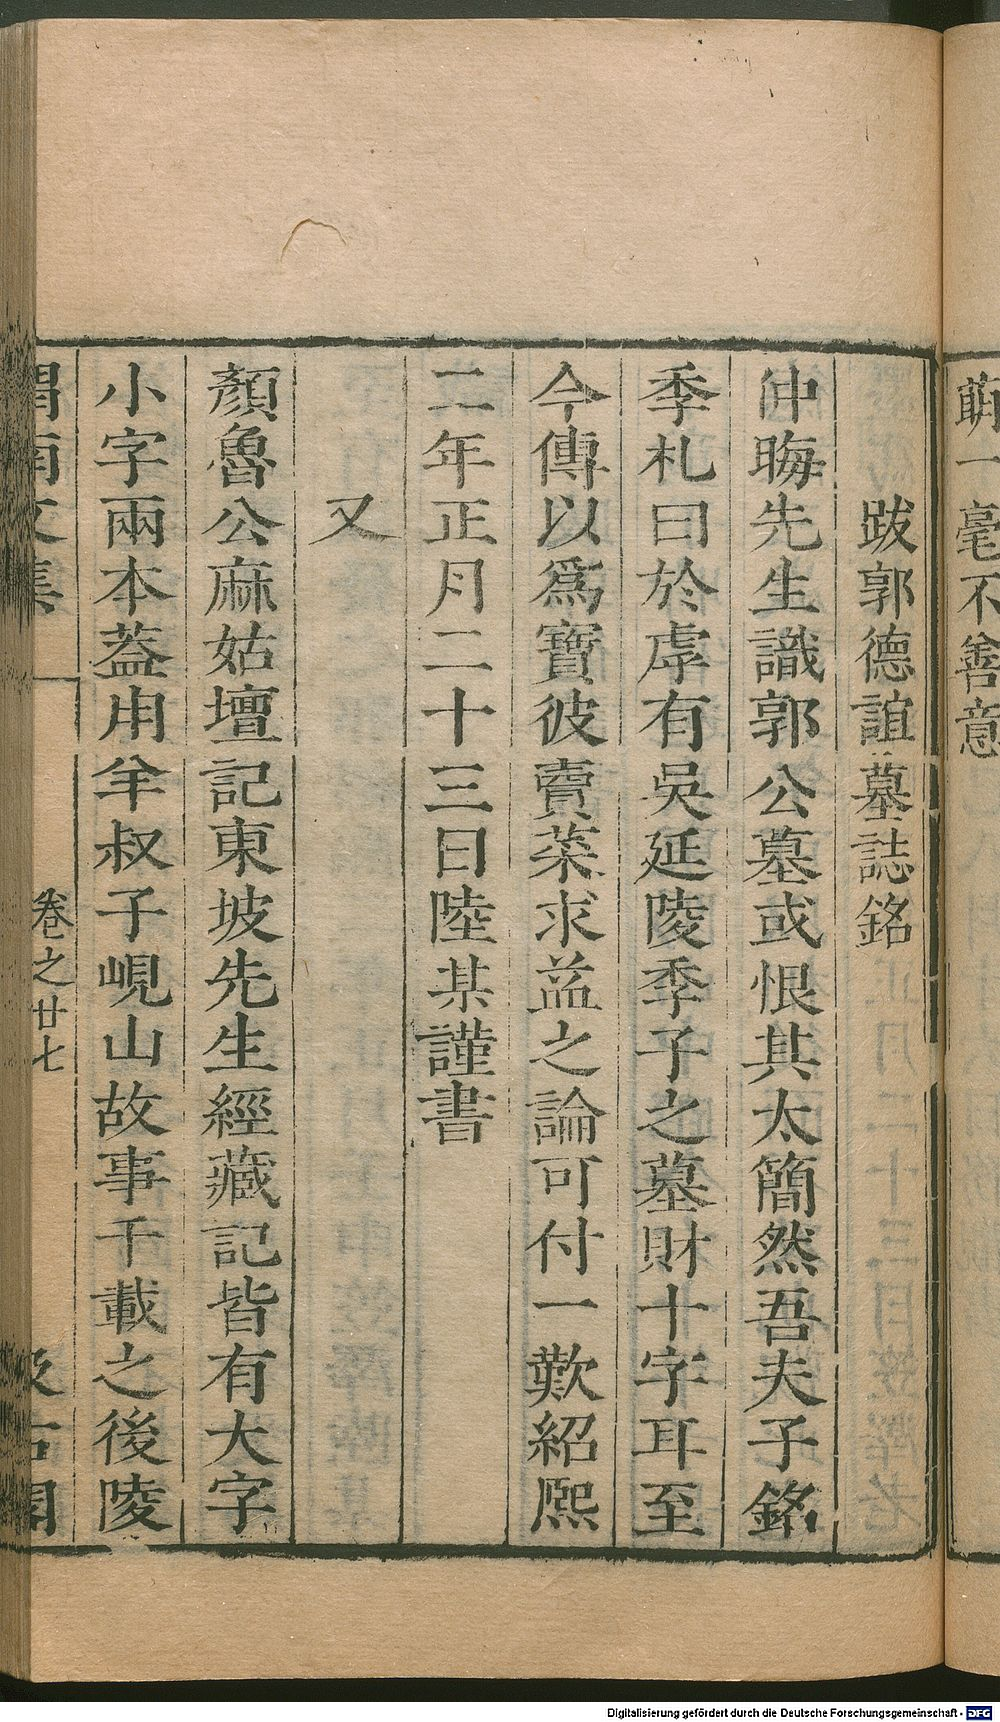 萌一毫不善意
跋郭德誼墓誌銘
仲晦先生識郭公墓或恨其太簡然吾夫子銘
季札曰於虖有吳延陵季子之墓財十字耳至
今傳以爲寶彼賣菜求益之論可付一歎紹熙
二年正月二十三日陸某謹書
又
顏魯公麻姑壇記東坡先生經藏記皆有大字
小字兩本葢用羊叔子峴山故事千載之後陵
渭南文集 卷之廿七 汲古閣
Digitalisierung gefördert durch die Deutsche Forschungsgemeinschaft - DFG